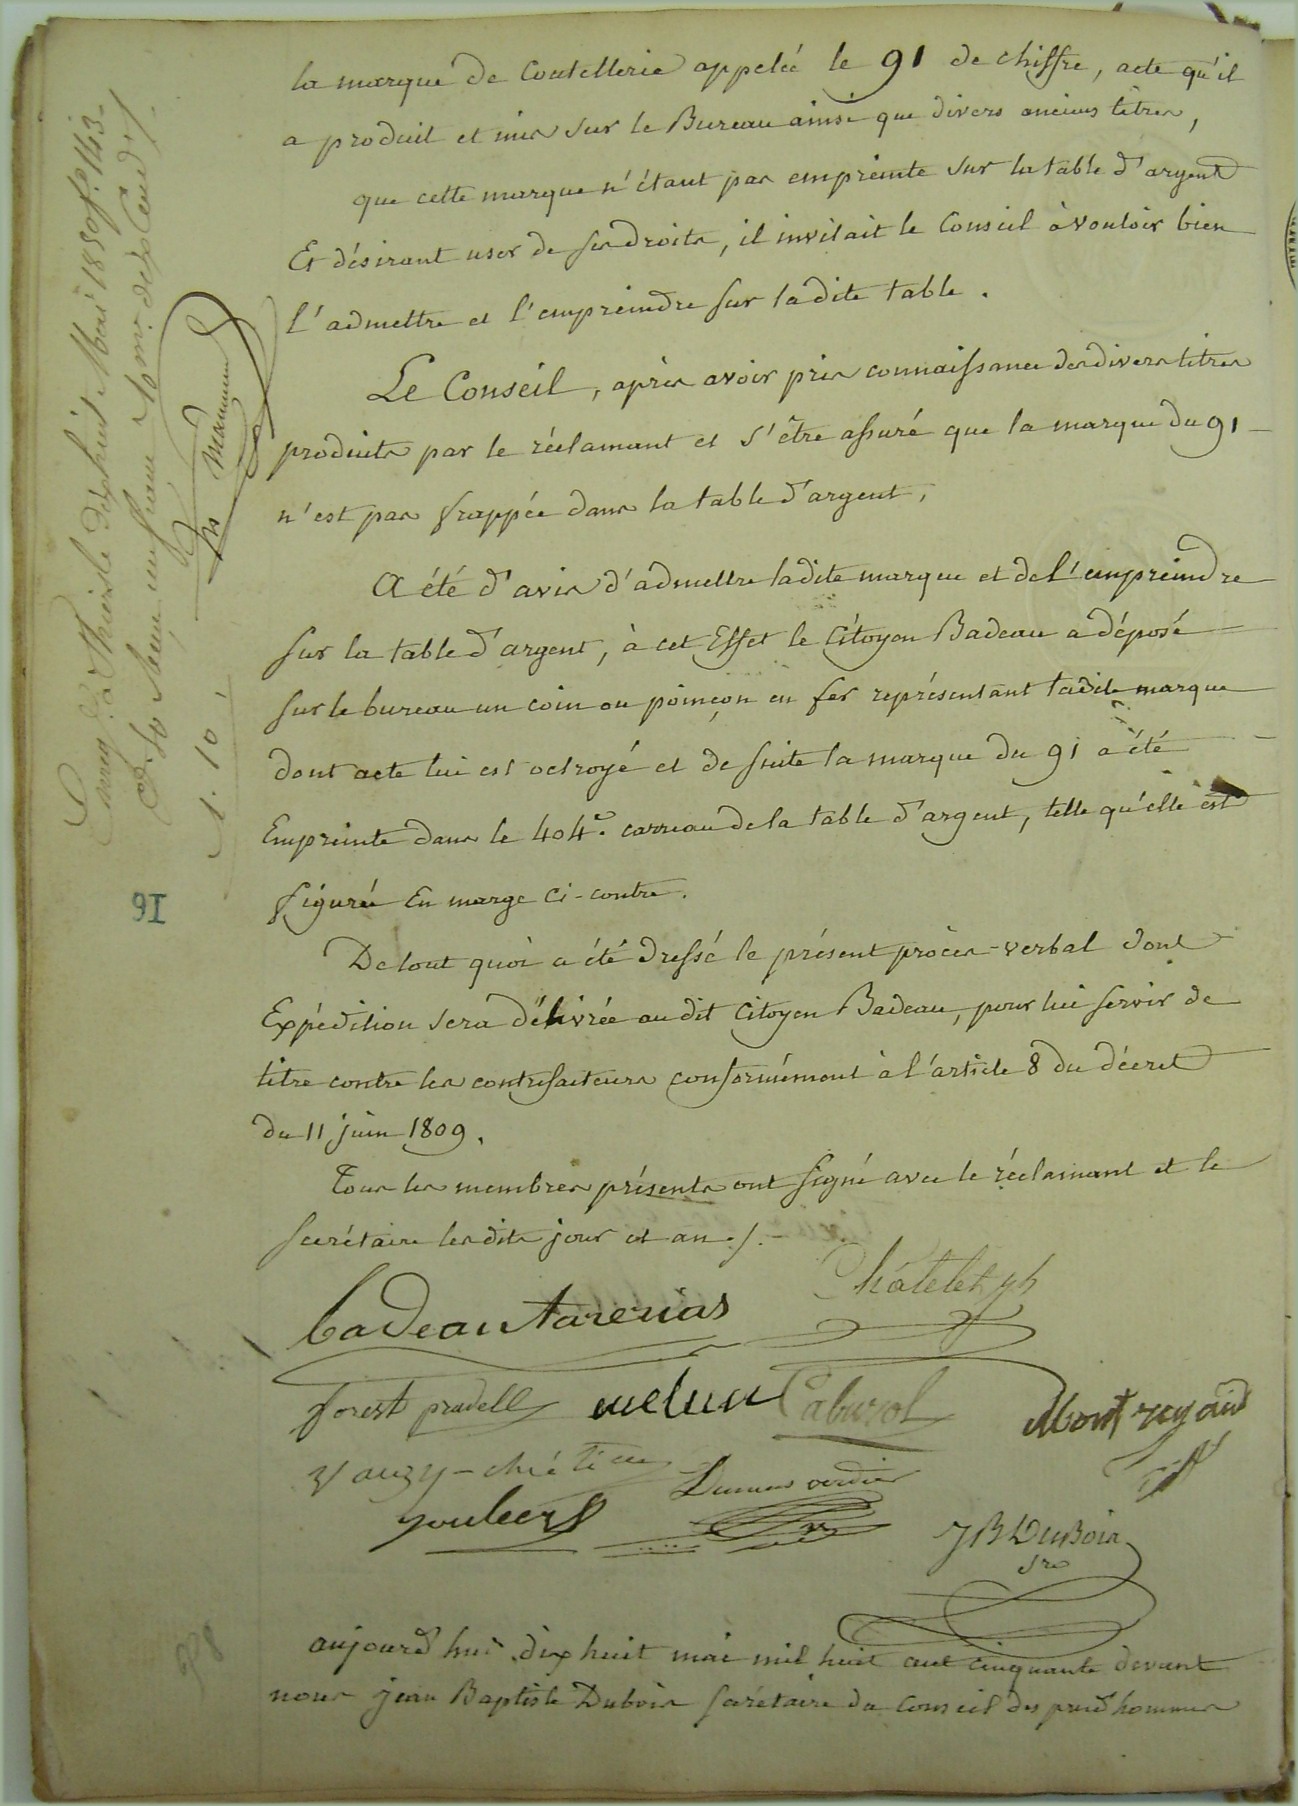 la marque de Coutellerie appelée le 91 de chiffre, acte qu'il
a produit et mis sur le Bureau ainsi que divers anciens titres,
que cette marque n'étant pas empreinte sur la table d'argent
Et désirant user de ses droits, il invitait le Conseil à vouloir bien
l'admettre et l'empreindre sur ladite table.
Le Conseil, après avoir pris connaissance des divers titres
produits par le réclamant et s'être assuré que la marque du 91
n'est pas frappée dans la table d'argent,
A été d'avis d'admettre ladite marque et de l'empreindre
sur la table d'argent, à cet Effet le Citoyen Badeau a déposé
sur le bureau un coin ou poinçon en fer représentant ladite marque
dont acte lui est octroyé et de suite la marque du 91 a été
Empreinte dans le 404e. carreau de la table d'argent, telle qu'elle est
figurée En marge Ci-contre.
De tout quoi a été dressé le présent procès-verbal dont
Expédition sera délivrée au dit Citoyen Badeau, pour lui servir de
titre contre les contrefacteurs conformément à l'article 8 du décret
du 11 juin 1809.
Tous les membres présents ont signé avec le réclamant et le
secrétaire les dits jour et an ./.
Badeau tarerias
Châtelet
forest pradell
Cabirol
Mont
yauzy-chrétien
Dumas verdier
Joubert
JB DuBois
sre
aujourd'hui dix huit mai mil huit cent cinquante devant
nous jean Baptiste Dubois secrétaire du Conseil des prud'hommes
Enreg. à Thiers le dix huit Mai 1850 fo. 143
1. 10
91